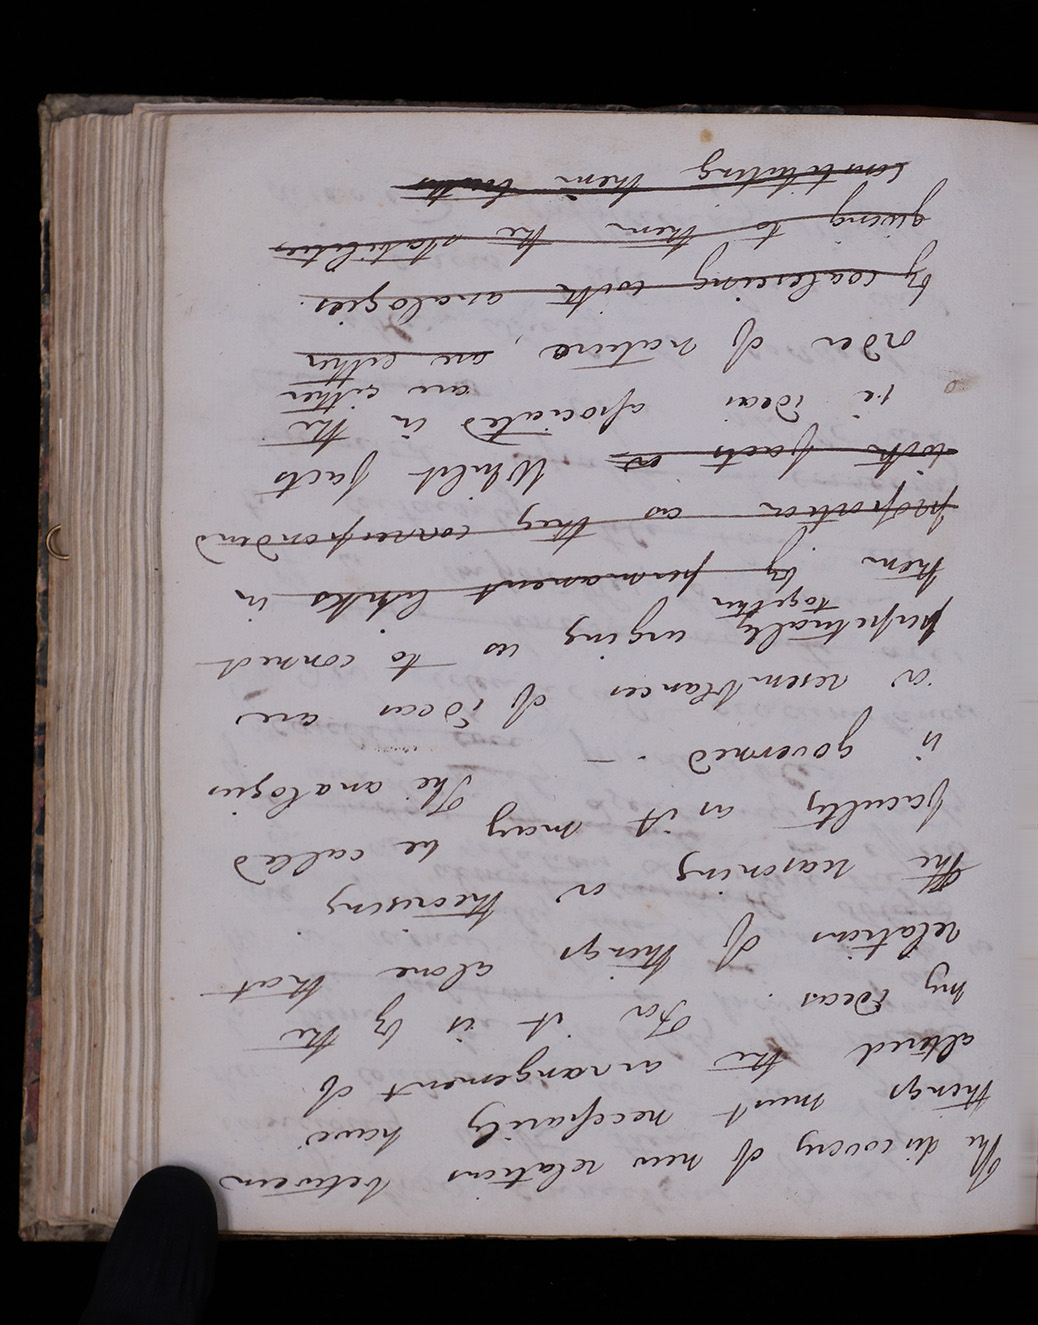 The discovery of new relations between
things must necessarily have
altered the arrangement of
my ideas. For it is by the
relations of things alone that
the reasoning or theorising
faculty as it may be called
is governed. — The analogies
or resemblances of Ideas are
perpetually urging us to connect
them together by permanent links in
proportion as they corresponded
with facts or Whilst facts
i.e ideas associated in the
are either
order of nature, are either
by coalescing with analogies.
giving to them the stabilities
constituting them truths